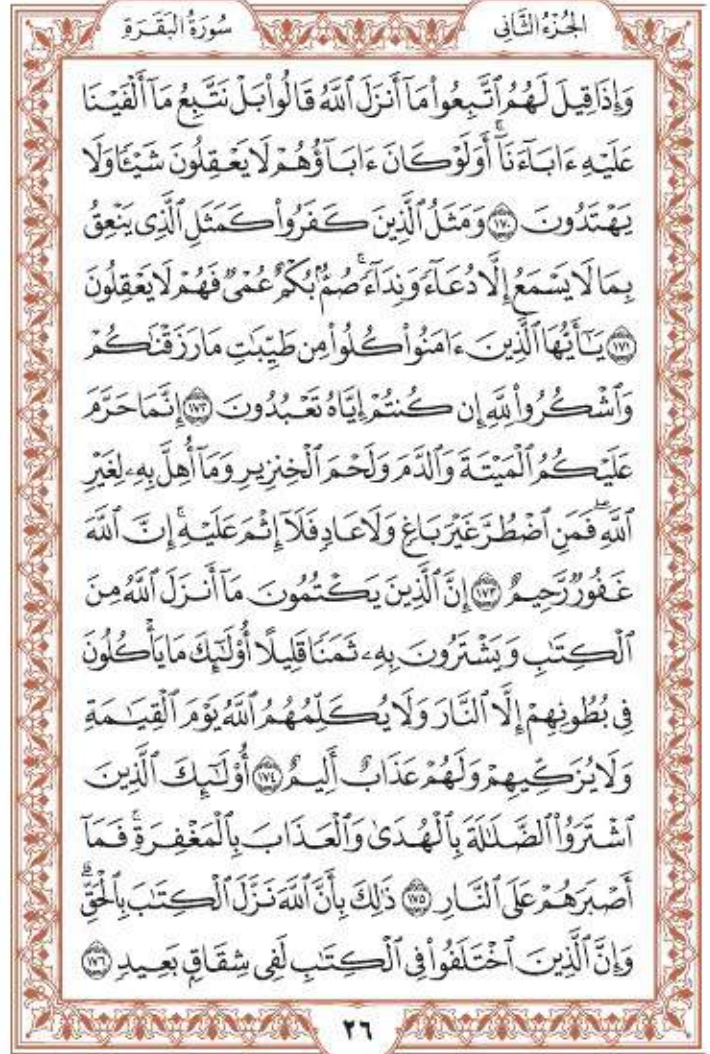 الجُزْءُ الثَّانِى
سُورَةُ البَقَرَةِ
وَإِذَا قِيلَ لَهُمُ ٱتَّبِعُوا۟ مَآ أَنزَلَ ٱللَّهُ قَالُوا۟ بَلْ نَتَّبِعُ مَآ أَلْفَيْنَا
عَلَيْهِ ءَابَآءَنَآ ۗ أَوَلَوْ كَانَ ءَابَآؤُهُمْ لَا يَعْقِلُونَ شَيْـًٔا وَلَا
يَهْتَدُونَ ١٧٠ وَمَثَلُ ٱلَّذِينَ كَفَرُوا۟ كَمَثَلِ ٱلَّذِى يَنْعِقُ
بِمَا لَا يَسْمَعُ إِلَّا دُعَآءً وَنِدَآءً ۚ صُمٌّۢ بُكْمٌ عُمْىٌ فَهُمْ لَا يَعْقِلُونَ
١٧١ يَـٰٓأَيُّهَا ٱلَّذِينَ ءَامَنُوا۟ كُلُوا۟ مِن طَيِّبَـٰتِ مَا رَزَقْنَـٰكُمْ
وَٱشْكُرُوا۟ لِلَّهِ إِن كُنتُمْ إِيَّاهُ تَعْبُدُونَ ١٧٢ إِنَّمَا حَرَّمَ
عَلَيْكُمُ ٱلْمَيْتَةَ وَٱلدَّمَ وَلَحْمَ ٱلْخِنزِيرِ وَمَآ أُهِلَّ بِهِۦ لِغَيْرِ
ٱللَّهِ ۖ فَمَنِ ٱضْطُرَّ غَيْرَ بَاغٍ وَلَا عَادٍ فَلَآ إِثْمَ عَلَيْهِ ۚ إِنَّ ٱللَّهَ
غَفُورٌ رَّحِيمٌ ١٧٣ إِنَّ ٱلَّذِينَ يَكْتُمُونَ مَآ أَنزَلَ ٱللَّهُ مِنَ
ٱلْكِتَـٰبِ وَيَشْتَرُونَ بِهِۦ ثَمَنًا قَلِيلًا ۙ أُو۟لَـٰٓئِكَ مَا يَأْكُلُونَ
فِى بُطُونِهِمْ إِلَّا ٱلنَّارَ وَلَا يُكَلِّمُهُمُ ٱللَّهُ يَوْمَ ٱلْقِيَـٰمَةِ
وَلَا يُزَكِّيهِمْ وَلَهُمْ عَذَابٌ أَلِيمٌ ١٧٤ أُو۟لَـٰٓئِكَ ٱلَّذِينَ
ٱشْتَرَوُا۟ ٱلضَّلَـٰلَةَ بِٱلْهُدَىٰ وَٱلْعَذَابَ بِٱلْمَغْفِرَةِ ۚ فَمَآ
أَصْبَرَهُمْ عَلَى ٱلنَّارِ ١٧٥ ذَٰلِكَ بِأَنَّ ٱللَّهَ نَزَّلَ ٱلْكِتَـٰبَ بِٱلْحَقِّ ۗ
وَإِنَّ ٱلَّذِينَ ٱخْتَلَفُوا۟ فِى ٱلْكِتَـٰبِ لَفِى شِقَاقٍۭ بَعِيدٍ ١٧٦
٢٦